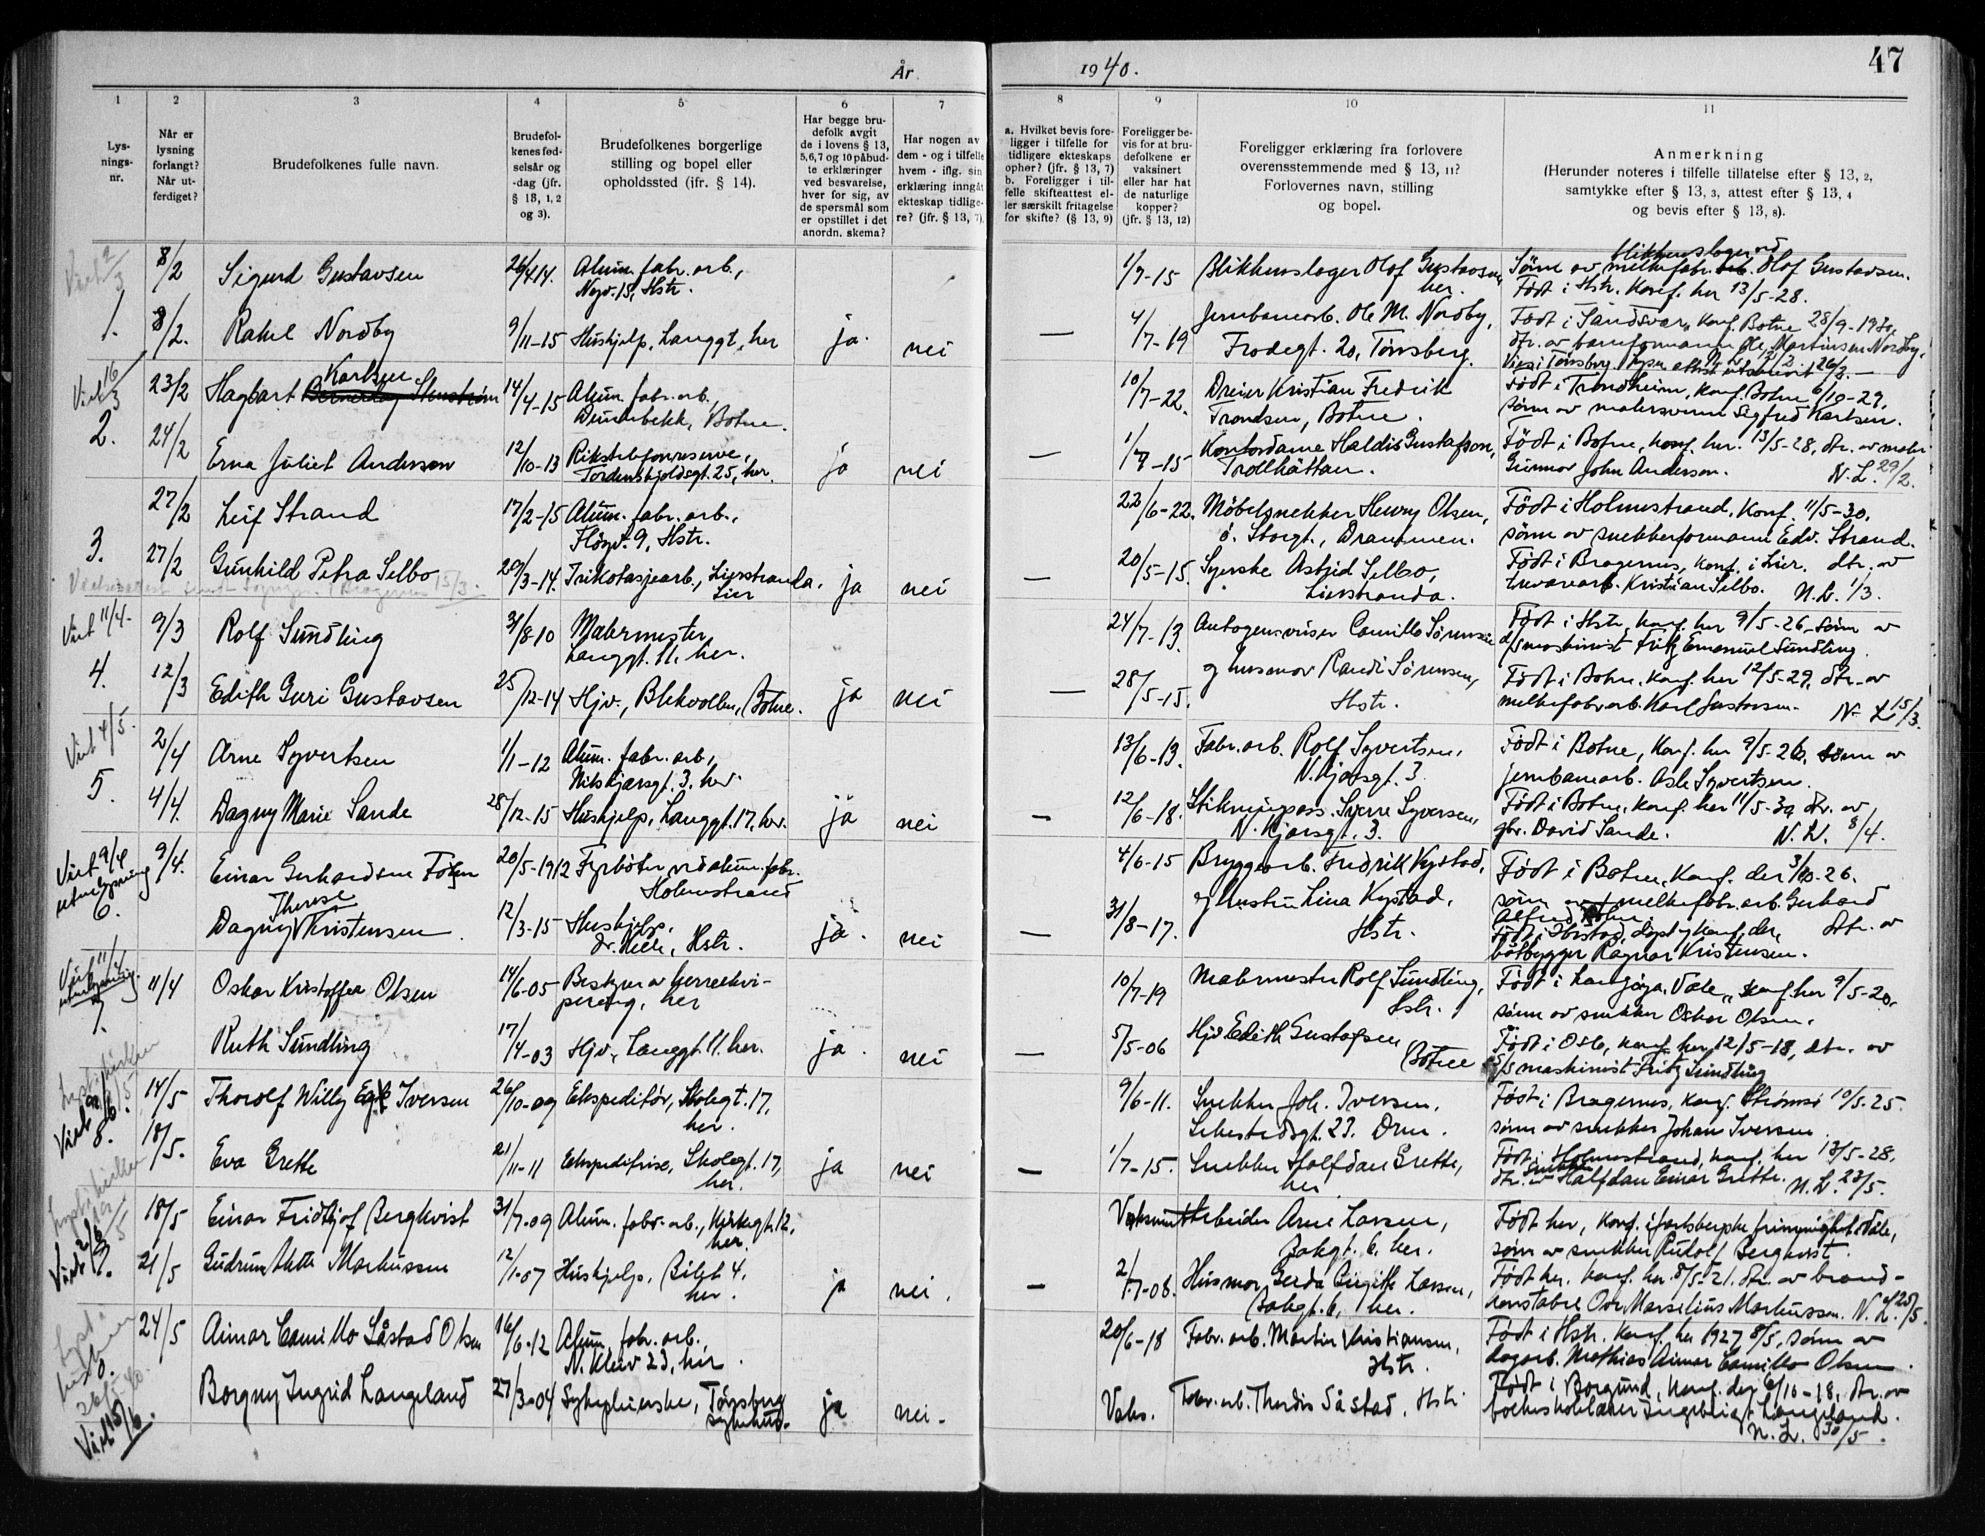 År 1940.
47
1 2 3 4 5 6 7 8 9 10 11
Lys-
nings-
nr.
Når er
lysning
forlangt?
Når ut-
ferdiget?
Brudefolkenes fulle navn.
Brudefol-
kenes fød-
selsår og
-dag (jfr.
§ 13, 1, 2
og 3).
Brudefolkenes borgerlige
stilling og bopel eller
opholdssted (ifr. § 14).
Har begge bru-
defolk avgit
de i lovens § 13,
5,6,7 og 10 påbud-
te erklæringer
ved besvarelse,
hver for sig, av
de spørsmål som
er opstillet i det
anordn. skema?
Har nogen av
dem - og i tilfelle
hvem - iflg. sin
erklæring inngåt
ekteskap tidlige-
re? (jfr. § 13, 7).
a. Hvilket bevis fore-
ligger i tilfelle for
tidligere ekteskaps
ophør? (jfr. § 13, 7)
b. Foreligger i til-
felle skifteattest el-
ler særskilt fritagelse
for skifte? (§ 13, 9)
Foreligger be-
vis for at bru-
defolkene er
vaksinert
eller har hat
de naturlige
kopper?
(jfr. § 13, 12)
Foreligger erklæring fra forlovere
overensstemmende med § 13, 11?
Forlovernes navn, stilling
og bopel.
Anmerkning
(Herunder noteres i tilfelle tillatelse efter § 13, 2,
samtykke efter § 13, 3, attest efter § 13, 4
og bevis efter § 13, 8).
Viet 2/3
8/2 Sigurd Gustavsen 26/4 14. Alum. fabr. arb., 1/7-15 Blikkenslager Olof Gustavsen, her. Sønn av blikkenslager ved melkefabr. arb. Olof Gustavsen.
15, Hstr. Født i Hstr. Konf. her 13/5-28.
1. 8/2. Rakel Nordby 9/11-15 Hushjelp, Langgt, her ja. nei — 4/7-19 Jernbanearb. Ole M. Nordby, Født i Sandsvær, Konf. Botne 28/9-1930,
Frodegt. 20, Tønsberg. dtr. av baneformann Ole Martinsen Nordby.
Viet 16/3
23/2 Hagbart Karlsen 14/4-15 Alum. fabr. arb. 10/7-22. Dreier Kristian Fredrik Født i Trondheim, Konf. Botne 6/10-29,
Botne. Trondsen, Botne. sønn av malersvenn Sigfred Karlsen.
2. 24/2 Erna Juliet Anderson 12/10-13 Rikstelefonreserve, ja nei — 1/7-15 Kontordame Haldis Gustafsson, Født i Botne, Konf. her. 13/5-28, dtr. av
Tordenskjoldsgt. 25, her. Trollhättan. Gunnar John Anderson. N. L. 29/2.
27/2 Leif Strand 17/2-15 Alum. fabr. arb., 22/6-22. Møbelsnekker Henry Olsen, Født i Holmestrand. Konf. 11/5-30,
9, Hstr. ø. Storgt., Drammen. sønn av snekkerformann Edv. Strand.
3. 27/2 Gunhild Petra Selbo 29/3-14. Trikotasjearb, Lierstranda. ja nei — 20/5-15. Syerske Astrid Selbo, Født i Bragernes, konf. i Lier. dtr. av
Lier Lierstranda. Kristian Selbo. N. L. 1/3.
Viet 11/4-
9/3 Rolf Sundling 31/8-10 Malermester, 24/7-13. Camillo Sørensen Født i Hstr, konf. her 9/5-26, sønn av
Langgt. 11, her. d/s maskinist Fritz Emanuel Sundling.
4. 12/3 Edith Guri Gustavsen 25/12-14 Hjv., Blekvollen, Botne. ja nei — 28/5-15. g husmor Randi Sørensen, Født i Botne. konf. her 12/5-29, dtr. av
Hstr. melkefabr. arb. Karl Gustavsen. N. L 15/3.
Viet 4/5.
2/4 Arne Syvertsen 1/1-12 Alum. fabr. arb, 13/6-13. Fabr. arb. Rolf Syvertsen, Født i Botne, Konf. her 9/5-26, sønn av
Nils Kjærsgt. 3. her. N. Kjærsgt. 3. jernbanearb. Asle Syvertsen.
5. 4/4. Dagny Marie Sande 28/12-15 Hushjelp, Langgt. 17, her. ja nei — 12/6-18. Syversen, Født i Botne, konf. her 11/5-30, dtr. av
N. Kjærsgt. 3. gbr. David Sande. N. L. 8/4.
Viet 9/4
uten lysning
6. 9/4. Einar Gerhardsen 20/5-1912 Fyrbøter ved alum. fabr. 4/6-15 Bryggearb. Fredrik Kystad, Født i Botne, Konf. der 3/10-26.
Holmestrand g hustru Lina Kystad, sønn av melkefabr. arb. Gerhard
Dagny Therese Kristensen. 12/3-15 Hushjelp, Hstr. ja. nei — 31/8-17. Hstr. Alfred
Født i Ibestad, døpt og konf. der, dtr. av
båtbygger Ragnar Kristensen.
Viet 11/4
uten lysning.
7. 11/4 Oskar Kristoffer Olsen 14/6-05 Bestyrer av herreekvi- 10/7-19 Malermester Rolf Sundling, Født i Våle, konf. her 9/5-20,
pering, her Hstr. sønn av snekker Oskar Olsen.
Ruth Sundling 17/4-03 Hjv, Langgt. 11. her. ja. nei — 5/5-06 Hjv Edith Gustafsen Født i Oslo, konf. her 12/5-18, dtr. av
Botne d/s maskinist Fritz Sundling
14/5 Thorolf Willy Iversen 26/10-09 Ekspeditør, Skolegt. 17, 9/6-11. Snekker Joh. Iversen, Født i Bragernes, konf. Strømsø 10/5-25.
her. 23. Drm. sønn av snekker Johan Iversen
8. 18/5. Eva Grette 21/11-11 Ekspeditrise, Skolegt. 17, ja nei — 1/7-15. Snekker Halfdan Grette, Født i Holmestrand, konf. her 13/5-28,
her. her dtr. av snekker Halfdan Einar Grette. N. L. 23/5.
18/5 Einar Fridtjof Bergkvist 31/7-09 Alum. fabr. arb., Kirkegt. 12, Arne Larsen, Født her, konf. i Våle,
her. 6. her. sønn av snekker Rudolf Bergkvist.
9. 21/5 Gudrun Markussen 12/1-07 Hushjelp, 4. ja nei. — 2/7-08. Husmor Gerda Birgitte Larsen, Født her. konf. her. 8/5-21. dtr. av brand-
her. 6, her. konstabel Marsilius Markussen. N. L. 25/5.
24/5 Aimar Camillo Såstad Olsen 16/6-12 Alum. fabr. arb., 20/6-18 Fabr. arb. Martin Kristiansen, Født i Hstr. konf. her 1927 8/5, sønn av
N. Klev 23, her. Hstr. dagarb. Mathias Aimar Camillo Olsen.
10. Borgny Ingrid Langeland 27/3-04 Sykepleierske, Tønsberg ja nei. Vaks. Fabr. arb. Thordis Såstad, Hstr. Født i Borgund, konf. der 6/10-18, dtr. av
sykehus. folkeskolelærer Ingebrigt Langeland.
N. L. 30/5.
Viet 15/6.